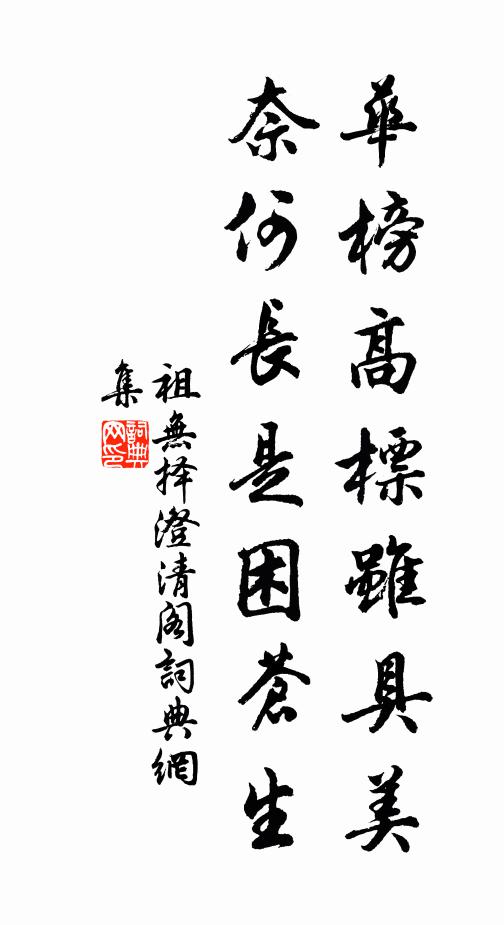 華榜高標雖具美
奈何長是困蒼生
祖無择澄清阁詞典網
集
詞典
网印